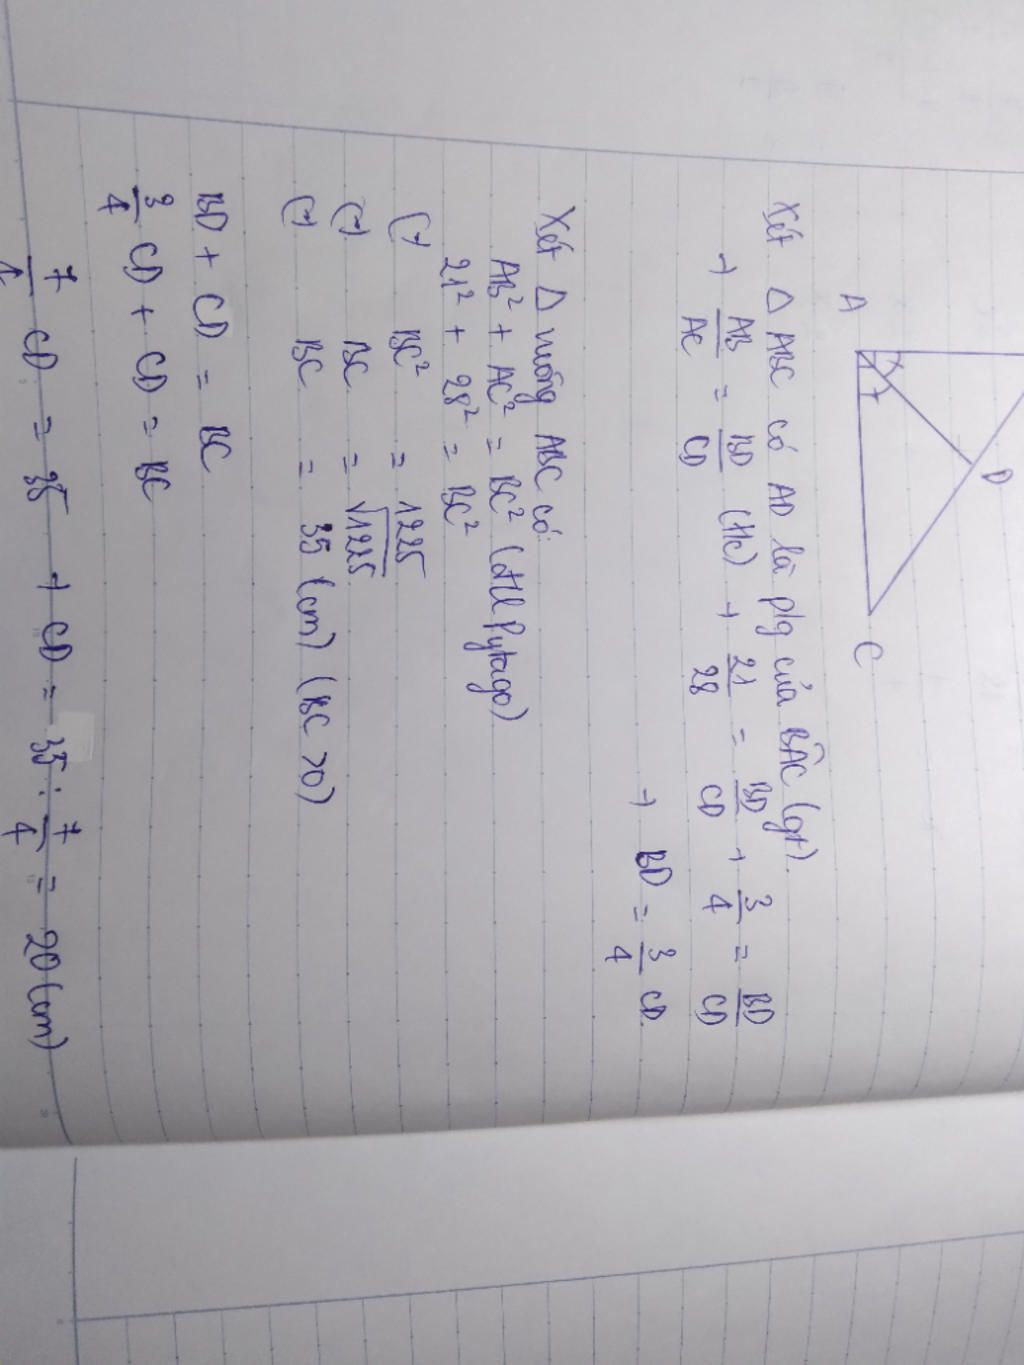 A
D
C
Xét Δ ABC có AD là p/g của BÂC (gt).
→ AB/AC = BD/CD (t/c) → 21/28 = BD/CD → 3/4 = BD/CD
→ BD = 3/4 CD.
Xét Δ vuông ABC có
AB² + AC² = BC² (đ/l Pytago)
21² + 28² = BC²
(→) BC² = 1225
(→) BC = √1225
(→) BC = 35 (cm) (BC >0)
BD + CD = BC
3/4 CD + CD = BC
7/4 CD = 35 → CD = 35 : 7/4 = 20 (cm)